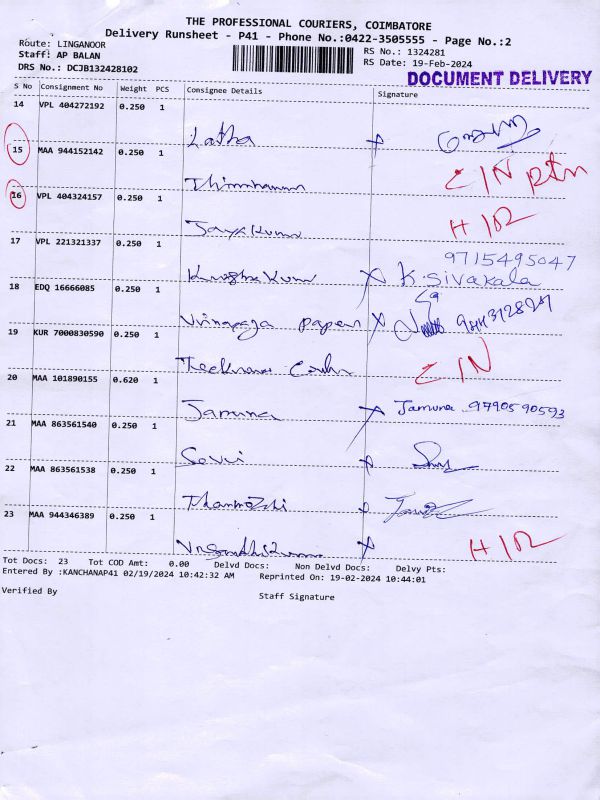 THE PROFESSIONAL COURIERS, COIMBATORE
Delivery Runsheet - P41 - Phone No.:0422-3505555 - Page No.:2
Route: LINGANOOR
Staff: AP BALAN
DRS No.: DCJB132428102
RS No.: 1324281
RS Date: 19-Feb-2024
DOCUMENT DELIVERY
S No Consignment No Weight PCS Consignee Details Signature
14 VPL 404272192 0.250 1
Latha
15 MAA 944152142 0.250 1
CIN ptn
16 VPL 404324157 0.250 1
Jaya Kumar
17 VPL 221321337 0.250 1
9715495047
K. Sivakala
18 EDQ 16666085 0.250 1
19 KUR 7000830590 0.250 1
CIN
20 MAA 101890155 0.620 1
Jamuna Jamuna 9790590593
21 MAA 863561540 0.250 1
Selvi
22 MAA 863561538 0.250 1
23 MAA 944346389 0.250 1
Tot Docs: 23 Tot COD Amt: 0.00 Delvd Docs: Non Delvd Docs: Delvy Pts:
Entered By :KANCHANAP41 02/19/2024 10:42:32 AM Reprinted On: 19-02-2024 10:44:01
Verified By
Staff Signature